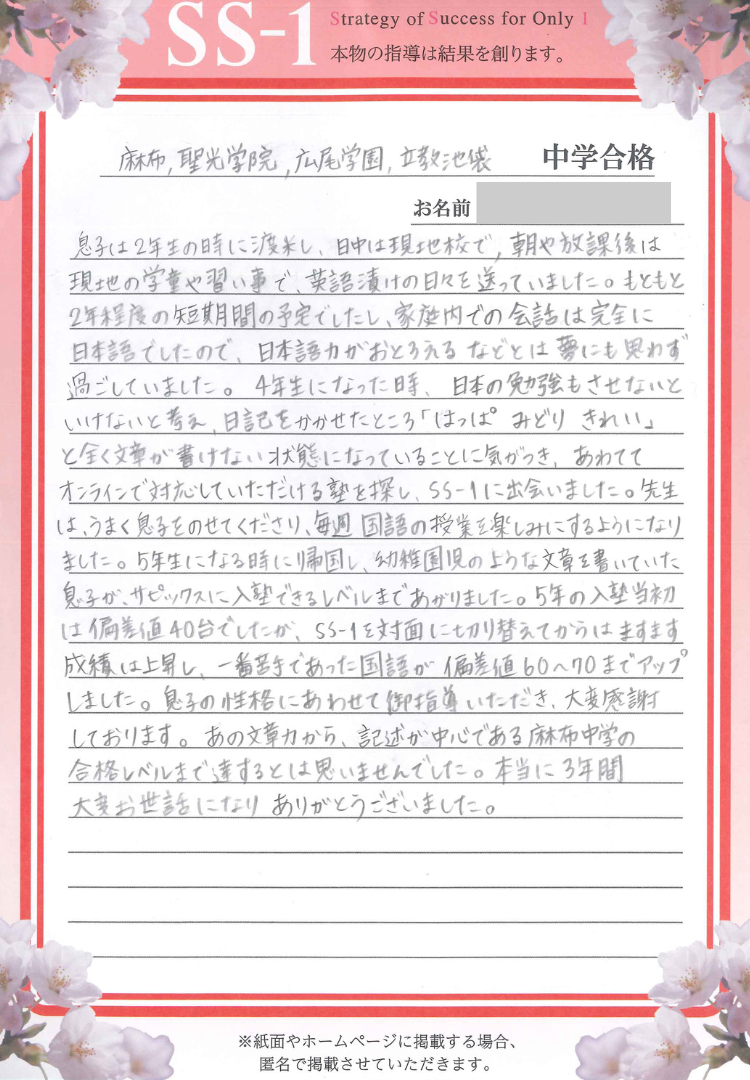 SS-1
Strategy of Success for Only 1
本物の指導は結果を創ります。
麻布, 聖光学院, 広尾学園, 立教池袋 中学合格
お名前
息子は2年生の時に渡米し、日中は現地校で, 朝や放課後は
現地の学童や習い事で、英語漬けの日々を送っていました。もともと
2年程度の短期間の予定でしたし、家庭内での会話は完全に
日本語でしたので、日本語力がおとろえるなどとは夢にも思わず
過ごしていました。4年生になった時、日本の勉強もさせないと
いけないと考え, 日記をかかせたところ「はっぱ みどり きれい」
と全く文章が書けない状態になっていることに気がつき、あわてて
オンラインで対応していただける塾を探し、SS-1に出会いました。先生
は、うまく息子をのせてくださり、毎週国語の授業を楽しみにするようになり
ました。5年生になる時に帰国し、幼稚園児のような文章を書いていた
息子が、サピックスに入塾できるレベルまであがりました。5年の入塾当初
は偏差値40台でしたが、SS-1を対面に切り替えてからはますます
成績は上昇し、一番苦手であった国語が偏差値60〜70までアップ
しました。息子の性格にあわせて御指導いただき、大変感謝
しております。あの文章力から、記述が中心である麻布中学の
合格レベルまで達するとは思いませんでした。本当に3年間
大変お世話になりありがとうございました。
※紙面やホームページに掲載する場合、
匿名で掲載させていただきます。